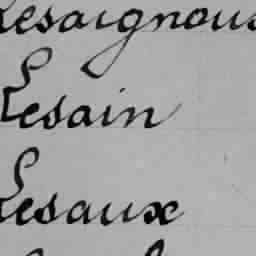 Lesaignoux
Lesain
Lesaux